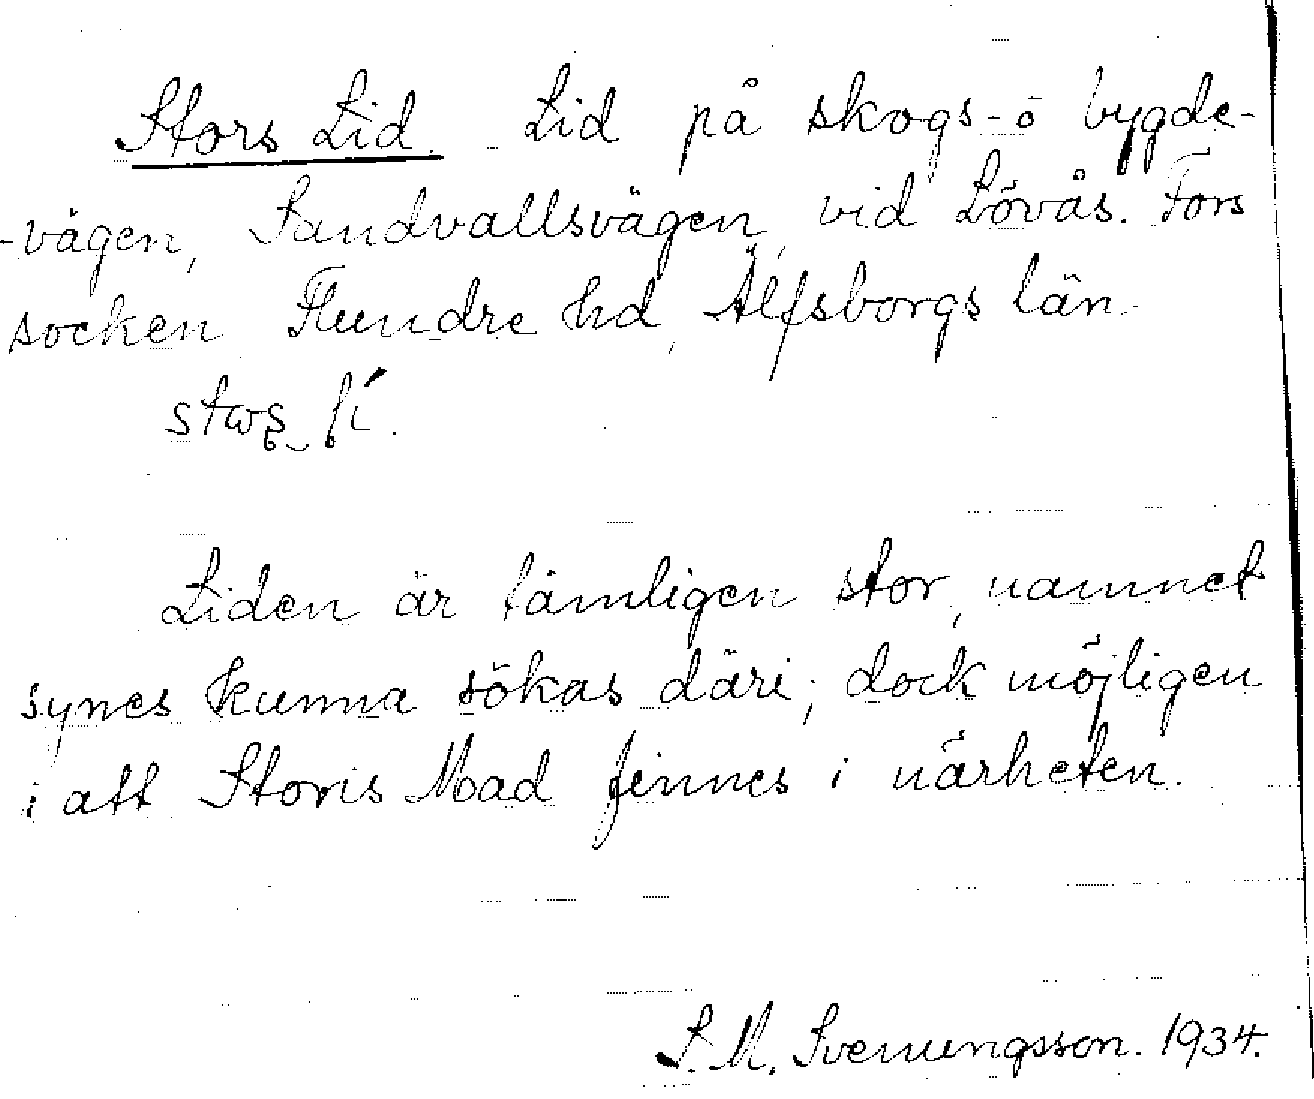 Stors Lid. Lid på skogs- o bygde-
-vägen, Sandvallsvägen, vid Lövås. Fors
socken Flundre hd, Älfsborgs län.
Liden är tämligen stor, namnet
synes kunna sökas däri; dock möjligen
i att Storris Mad finnes i närheten.
S. M. Svenungsson. 1934.